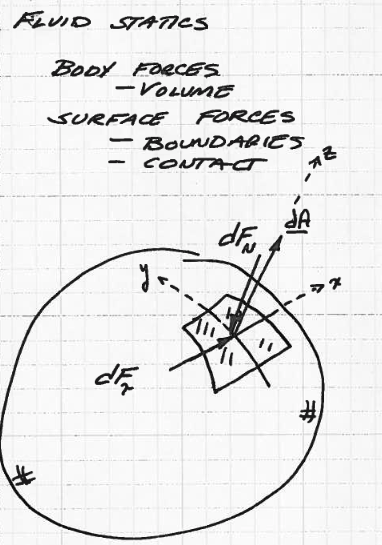 FLUID STATICS
BODY FORCES
- VOLUME
SURFACE FORCES
- BOUNDARIES
- CONTACT
z
dF_N dA
y x
dF_τ
#
#